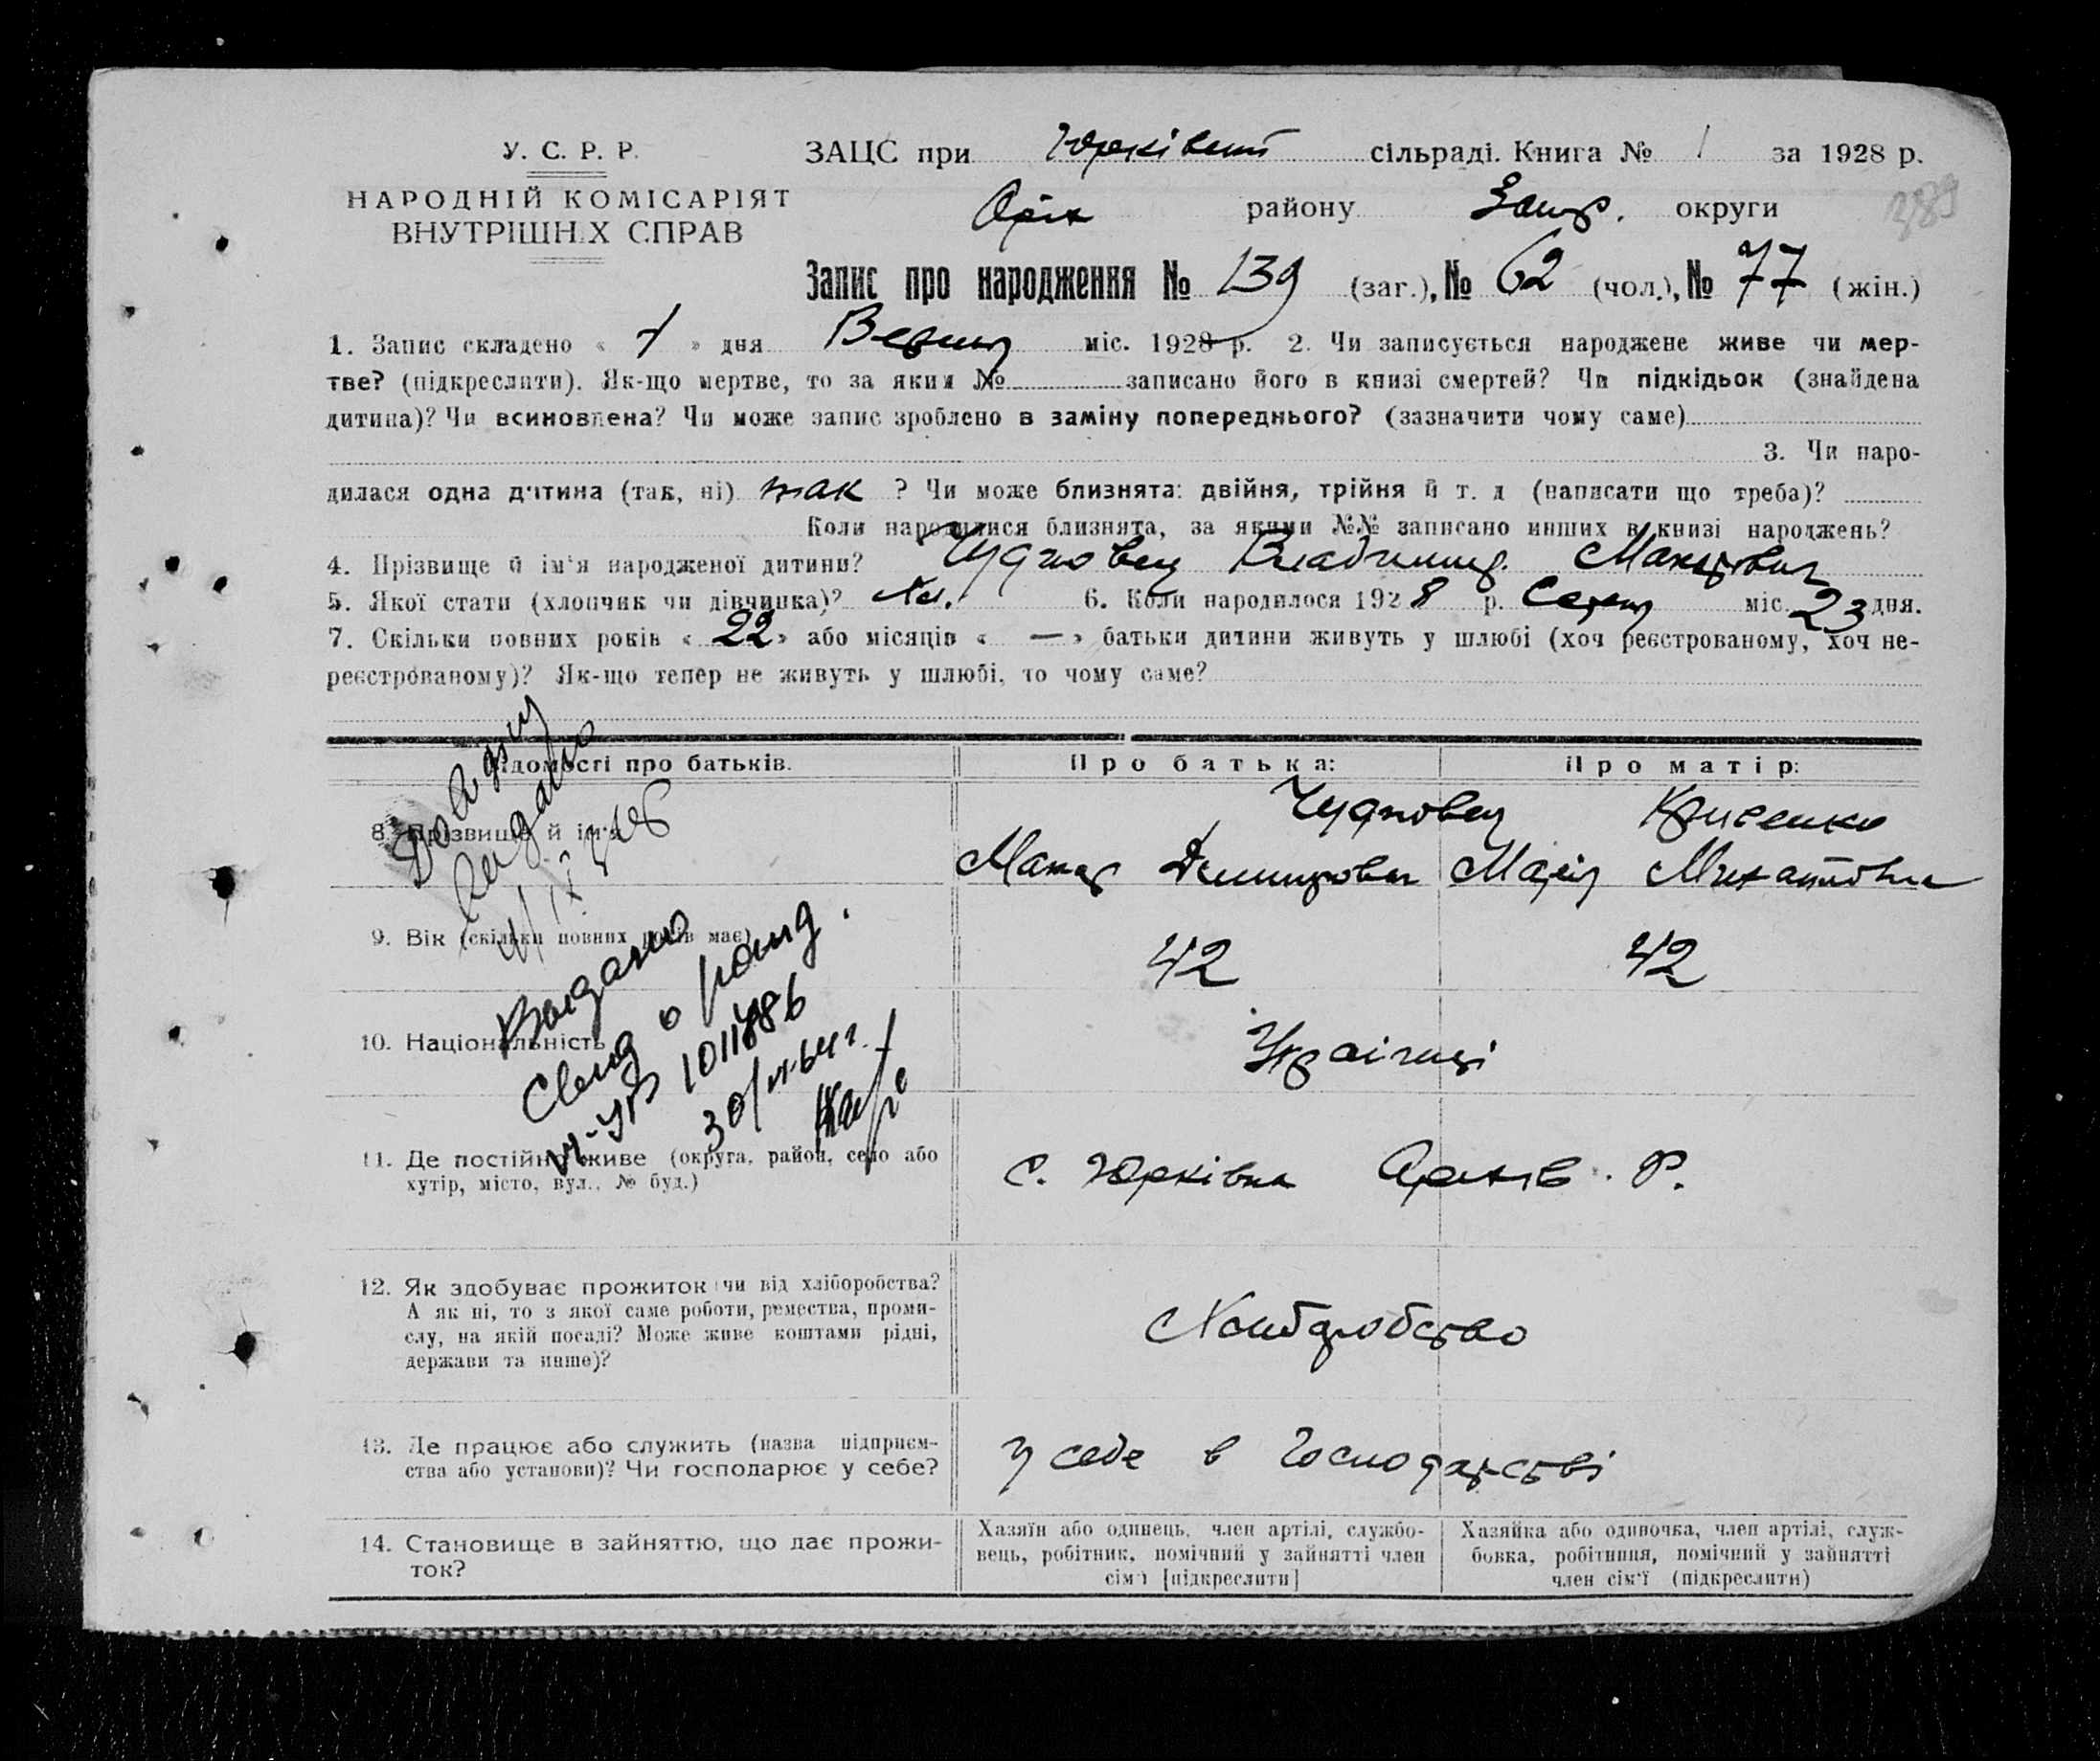 У. С. Р. Р.
НАРОДНІЙ КОМІСАРІЯТ
ВНУТРІШНІХ СПРАВ
ЗАЦС при Юрківській сільраді. Книга № 1 за 1928 р.
Оріх району Запор. округи
389
Запис про народження № 139 (заг.), № 62 (чол.), № 77 (жін.)
1. Запис складено « 7 » дня Вересня міс. 1928 р. 2. Чи записується народжене живе чи мер-
тве? (підкреслити). Як-що мертве, то за яким № записано його в книзі смертей? Чи підкідьок (знайдена
дитина)? Чи всиновлена? Чи може запис зроблено в заміну попереднього? (зазначити чому саме)
3. Чи наро-
дилася одна дитина (так, ні) так ? Чи може близнята: двійня, трійня й т. д (написати що треба)?
Коли народилися близнята, за якими №№ записано инших в книзі народжень?
4. Прізвище й ім'я народженої дитини? Чудновец Владимир Макарович
5. Якої стати (хлопчик чи дівчинка)? Хл. 6. Коли народилося 1928 р. Серпня міс. 23 дня.
7. Скільки повних років « 22 » або місяців « — » батьки дитини живуть у шлюбі (хоч реєстрованому, хоч не-
реєстрованому)? Як-що тепер не живуть у шлюбі, то чому саме?
Відомості про батьків. Про батька: Про матір:
8. Прізвище й ім'я Чудновец Макар Дмитрович Марія Михайловна
9. Вік (скільки повних років має) 42 42
10. Національність Українці
11. Де постійно живе (округа, район, село або
хутір, місто, вул., № буд.) с. Юрківка Оріхів. Р.
12. Як здобуває прожиток: чи від хліборобства?
А як ні, то з якої саме роботи, ремества, проми-
слу, на якій посаді? Може живе коштами рідні,
держави та инше)?
Хліборобство
13. Де працює або служить (назва підприєм-
ства або установи)? Чи господарює у себе?
У себе в господарстві
14. Становище в зайняттю, що дає прожи-
ток?
Хазяїн або одинець, член артілі, службо-
вець, робітник, помічний у зайнятті член
сім'ї [підкреслити]
Хазяйка або одиночка, член артілі, служ-
бовка, робітниця, помічний у зайнятті
член сім'ї (підкреслити)
Выдано
Свид о рожд.
1011886